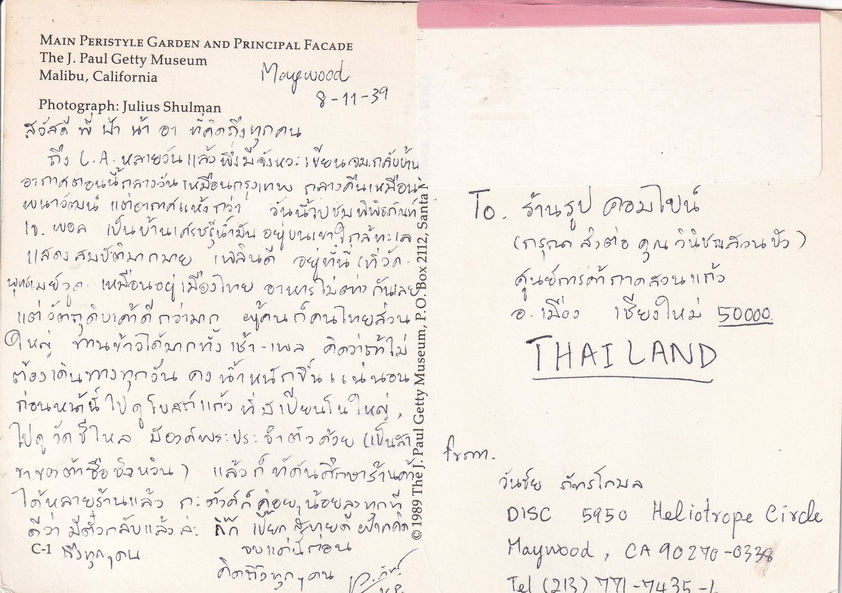 MAIN PERISTYLE GARDEN AND PRINCIPAL FACADE
The J. Paul Getty Museum
Malibu, California
Photograph: Julius Shulman
Maywood
8-11-39
สวัสดี พี่ ป้า น้า อา ที่คิดถึงทุกคน
ถึง L.A. หลายวันแล้วพึ่งมีจังหวะเขียนจม.กลับบ้าน
อากาศตอนนี้กลางวันเหมือนกรุงเทพ กลางคืนเหมือน
แต่อากาศแห้งกว่า วันนี้ไปชมพิพิธภัณฑ์
เจ. พอล เป็นบ้านเศรษฐีน้ำมัน อยู่บนเขาใกล้ทะเล
แสดงสมบัติมากมาย เพลินดี อยู่ที่นี่ (ที่วัด
เหมือนอยู่เมืองไทย อาหารไม่ต่างกันเลย
แต่วัตถุดิบเค้าดีกว่ามาก ผู้คนก็คนไทยส่วน
ใหญ่ ทานข้าวได้มากทั้งเช้า-เพล คิดว่าถ้าไม่
ต้องเดินทางทุกวัน คงน้ำหนักขึ้นแน่นอน
ก่อนหน้านี้ไปดูโบสถ์แก้ว ที่มีเปียนโนใหญ่,
ไปดูวัดซีไหล มีองค์พระประจำตัวด้วย (เป็นสา
ขาของต้า ) แล้วก็ ศึกษาร้านค้า
ได้หลายร้านแล้ว ค่อยๆน้อยลงทุกที
ดีว่ามีตั๋วกลับแล้วล่ะ
ถึงทุกๆคน จบแค่นี้ก่อน
คิดถึงทุกๆคน
C-1
© 1989 The J. Paul Getty Museum, P.O. Box 2112, Santa
To. ร้านรูป คอมไซน์
(กรุณาส่งต่อ คุณวินิช สวนบัว)
ศูนย์การค้ากาดสวนแก้ว
อ. เมือง เชียงใหม่ 50000
THAILAND
from.
วันชัย ภัทรโกมล
DISC 5950 Heliotrope Circle
Maywood, CA 90270-0338
Tel (213) 771-7435-6